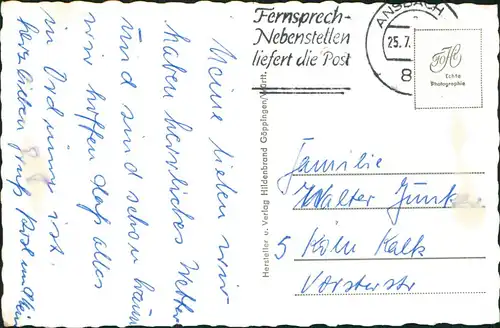 Meine lieben wir
haben herrliches Wetter
und sind schon braun
wir hoffen daß alles
in Ordnung ist.
Herzlichen Gruß
Fernsprech-
Nebenstellen
liefert die Post
ANSBACH
25.7.
8
Echte
Photographie
Hersteller u. Verlag Hildenbrand Göppingen/Württ.
Familie
Walter Junker
5 Köln Kalk
Vorsterstr